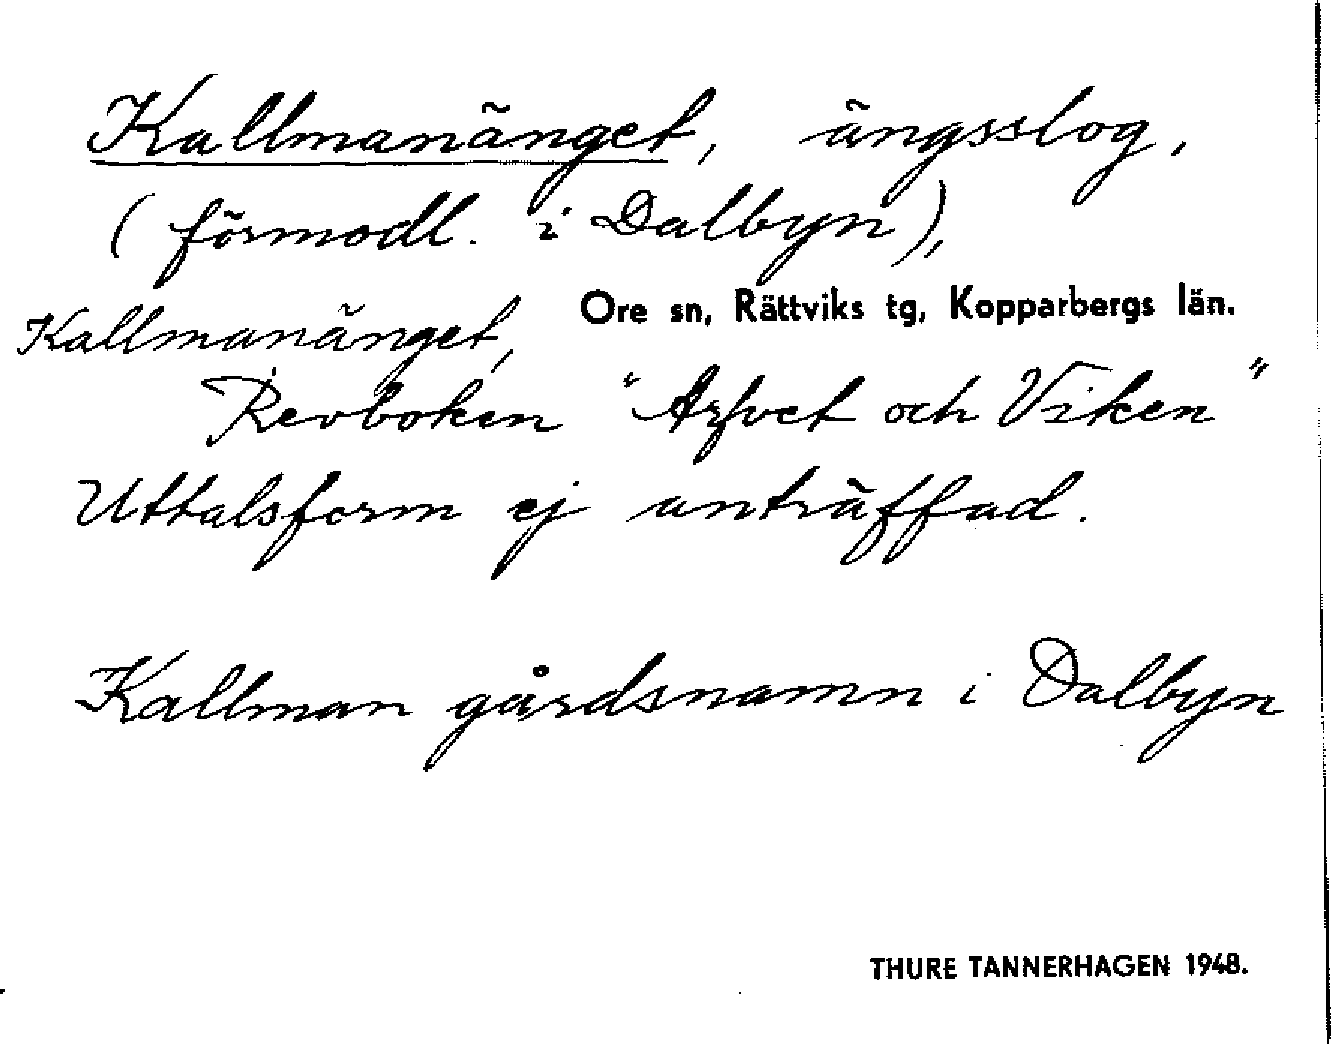 Kallmanänget, ängsslog,
(förmodl. i Dalbyn),
Ore sn, Rättviks tg, Kopparbergs län.
Kallmanänget,
Revboken "Arfvet och Viken"
Uttalsform ej anträffad.
Kallman gårdsnamn i Dalbyn
THURE TANNERHAGEN 1948.